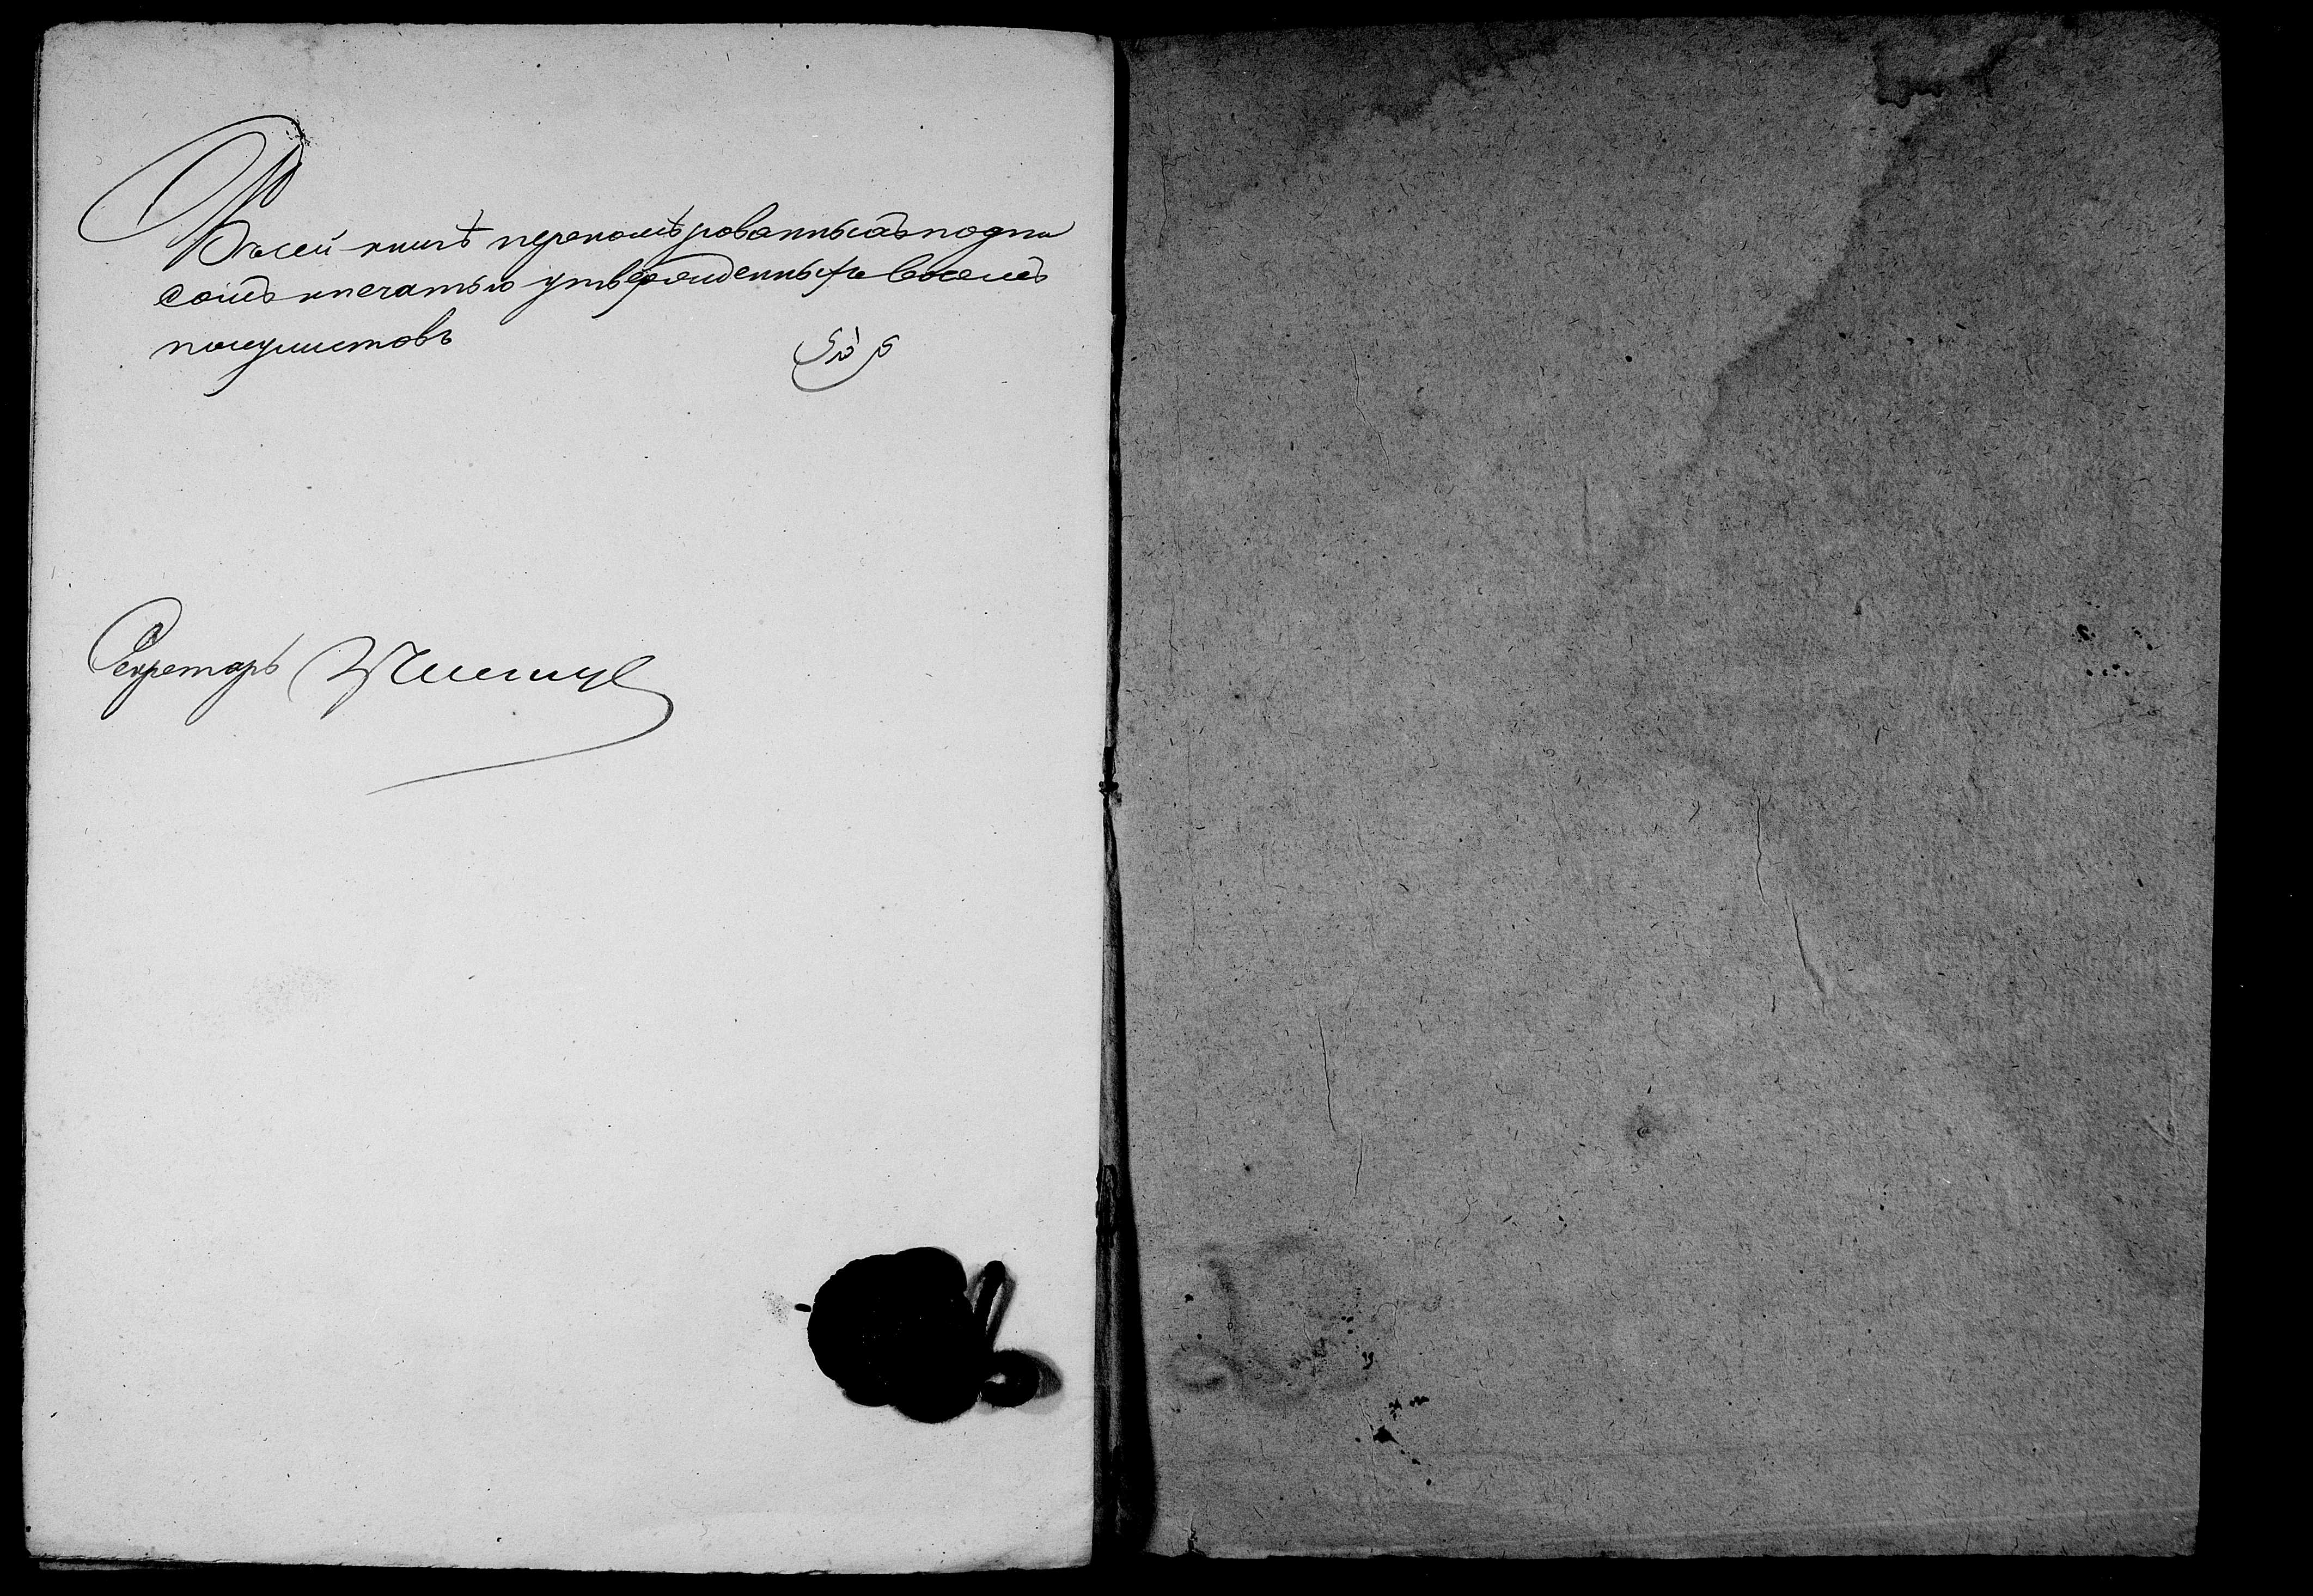 Въ сей книгѣ переномѣрованныхъ подпи
сомъ и печатью утвержденныхъ восемъ
полулистовъ
Секретарь